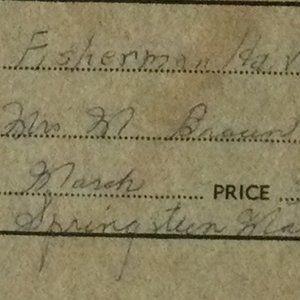 Fisherman Har
Mrs M Brown
March PRICE
Springsteen Ma